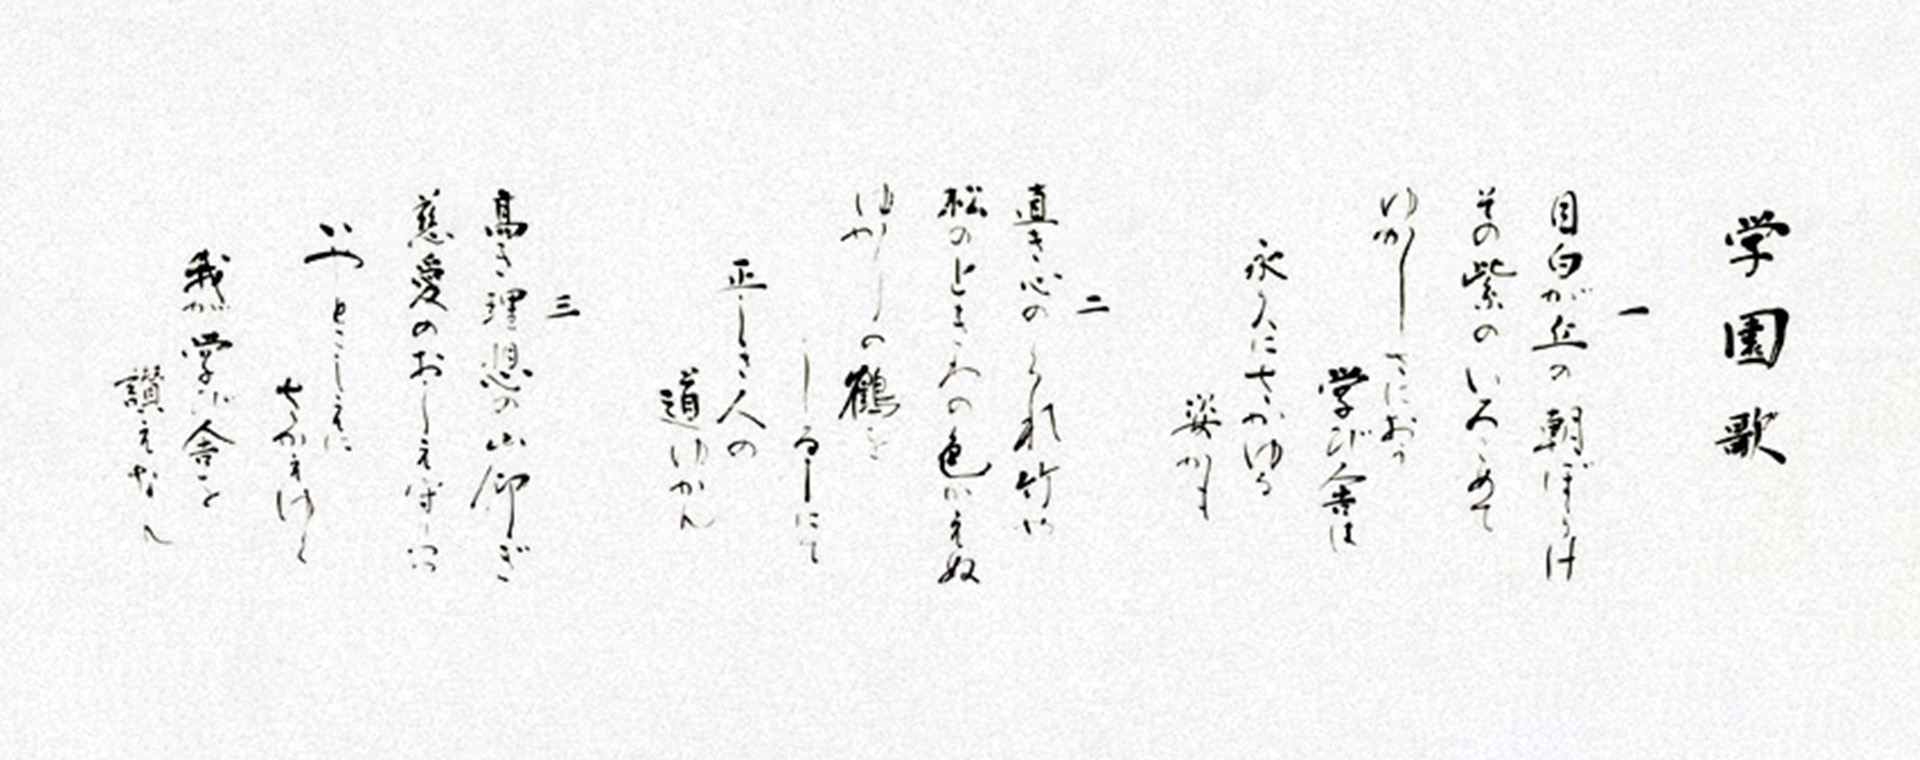 学園歌
一
目白が丘の朝ぼらけ
その紫のいろこめて
ゆかしさにおう
学び舎は
永久にさかゆる
姿かも
二
直き心のくれ竹に
松のときわの色かえぬ
ゆかりの鶴を
しるしにて
正しき人の
道ゆかん
三
高き理想の山仰ぎ
慈愛のおしえ守りつつ
いやとこしえに
さかえゆく
我が学び舎を
讃えなん